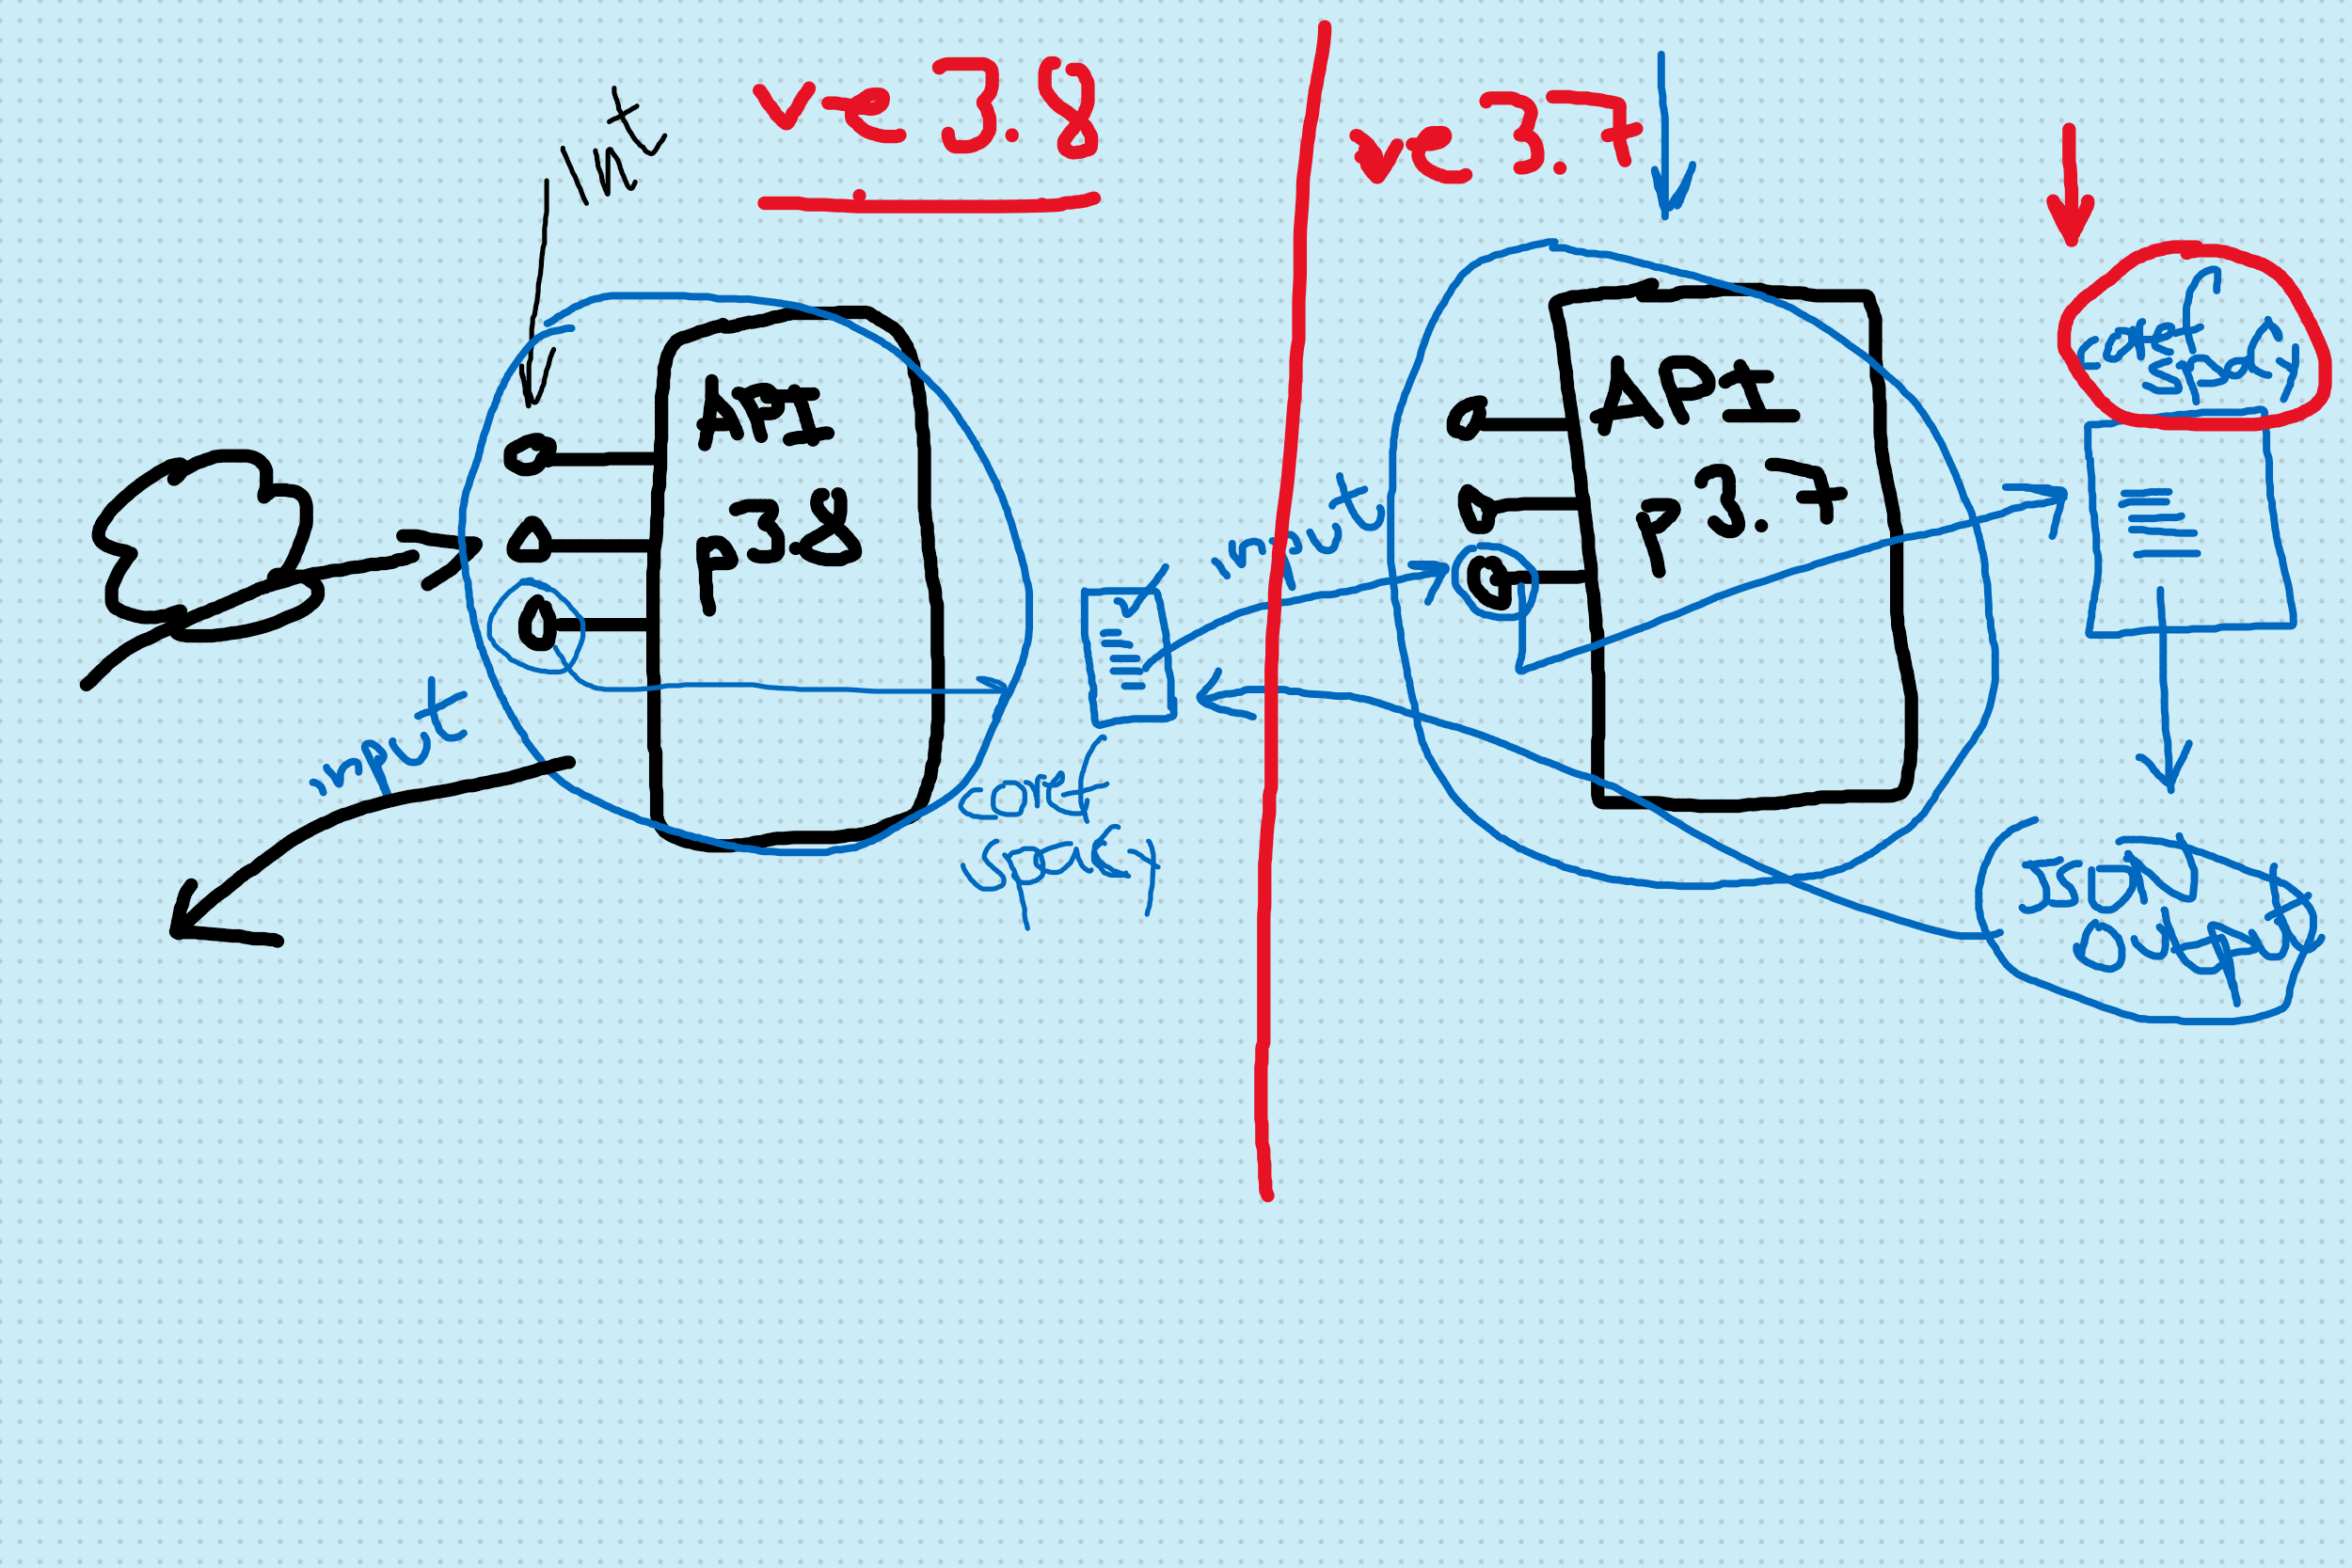 Int
ve 3.8
ve 3.7
API
p3.8
input
coref
spacy
input
API
p3.7
coref
spacy
JSON
output